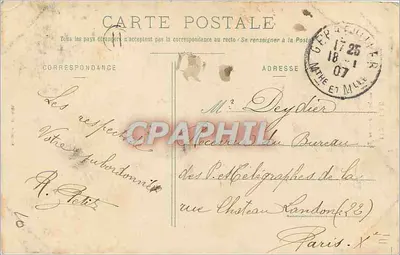 CARTE POSTALE
Tous les pays étrangers n'acceptent pas la correspondance au recto - Se renseigner à la Poste
CORRESPONDANCE
ADRESSE
17 25
18 - 1
07
MTHE ET MLLE
Les respects
Votre subordonné
R. Petit
Mr Deydier
Receveur du Bureau
des P. et Télégraphes de la
rue Chateau Landon (22)
Paris. Xe
CPARHIL